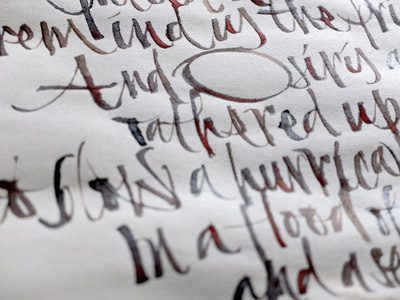 remind us the
And Osiris
Gathered up
to blow a hurrica
In a flood of
and a se